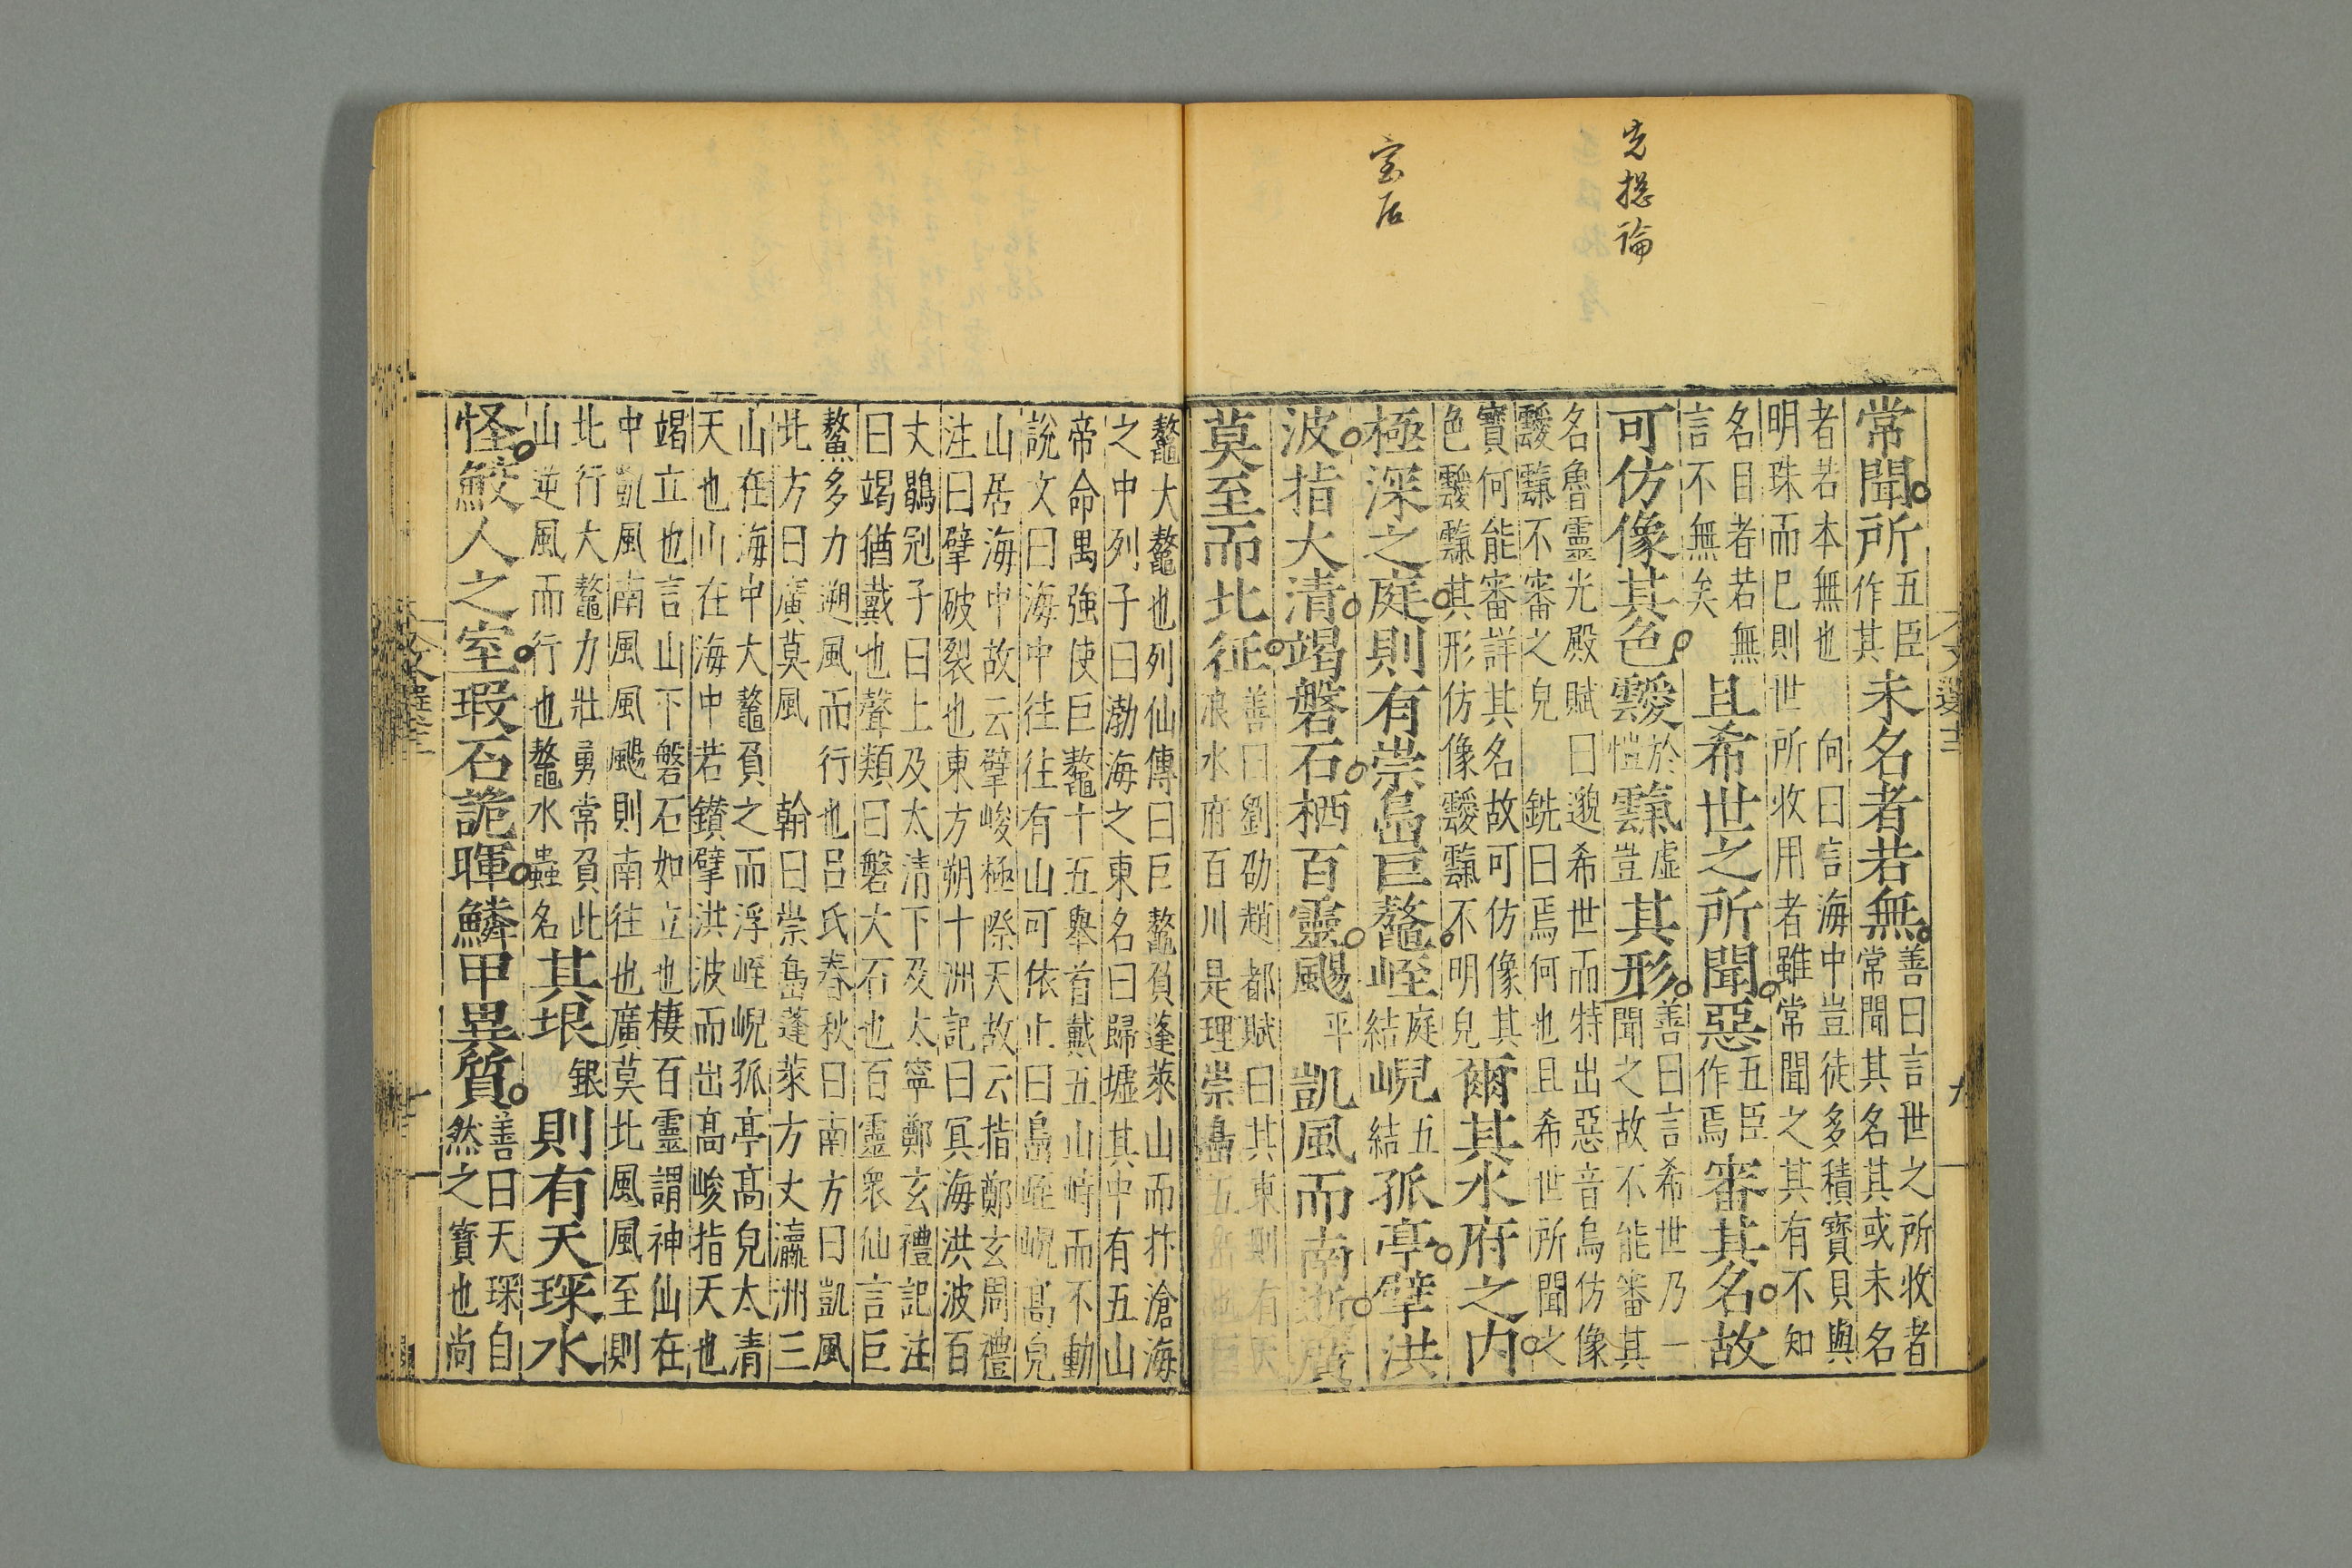 先揔論
室居
常聞所
五臣
作其
未名者若無
善曰言世之所收者
常聞其名其或未名
者若本無也 向曰言海中豈徒多積寶貝與
明珠而巳則世所收用者雖常聞之其有不知
名目者若無
言不無矣
且希世之所聞惡
五臣
作焉
審其名故
可仿像其色靉
於
愷
霼
虛
豈
其形
善曰言希世乃一
聞之故不能審其
名魯靈光殿賦曰邈希世而特出惡音烏仿像
靉霼不審之皃 銑曰焉何也且希世所聞之
寶何能審詳其名故可仿像其
色靉霼其形仿像靉霼不明皃
爾其水府之內
極深之庭則有崇島巨鼇峌
庭
結
峴
五
結
孤亭擘洪
波指大清竭磐石栖百靈颺
平
凱風而南逝廣
莫至而北征
善曰劉劭趙都賦曰其東則有天
浪水府百川是理崇島
鼇大鼇也列仙傳曰巨鼇負蓬萊山而抃滄海
之中列子曰渤海之東名曰歸墟其中有五山
帝命禺強使巨鼇十五舉首戴五山峙而不動
說文曰海中往往有山可依止曰島峌峴高皃
山居海中故云擘峻極際天故云指鄭玄周禮
注曰擘破裂也東方朔十洲記曰冥海洪波百
丈鶡冠子曰上及太清下及太寧鄭玄禮記注
曰竭猶戴也聲類曰磐大石也百靈衆仙言巨
鰲多力遡風而行也呂氏春秋曰南方曰凱風
北方曰廣莫風 翰曰崇島蓬萊方丈瀛洲三
山在海中大鼇負之而浮峌峴孤亭高皃太清
天也山在海中若鑽擘洪波而出高峻指天也
竭立也言山下磐石如立也棲百靈謂神仙在
中凱風南風風颺則南往也廣莫北風風至則
北行大鼇力壯勇常負此
山逆風而行也鼇水蟲名
其垠
銀
則有天琛水
怪鮫人之室瑕石詭暉鱗甲異質
善曰天琛自
然之寶也尚